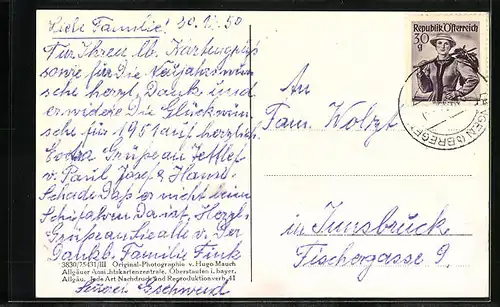 Liebe Familie! 30.XII.50
Für Ihren lb. Kartengruß
sowie für Die Neujahrswün
sche herzl. Dank und
erwidere Die Glückwün
sche für 1951 auf herzlich.
Extra Grüße an
v. Paul, Josef & Hansl.
Schade Daß er nicht beim
Schifahren Da ist. Herzl.
Grüße an Sie alle v. Der
Dankb. Familie Fink
3830/75431/III Original-Photographie v. Hugo Mauch
Allgäuer Ansichtskartenzentrale, Oberstaufen i. bayer.
Allgäu. Jede Art Nachdruck und Reproduktion verb. 41
Gschwend
Republik Österreich
30
g
An
Fam. Wolzt
in Innsbruck
Fischergasse 9.